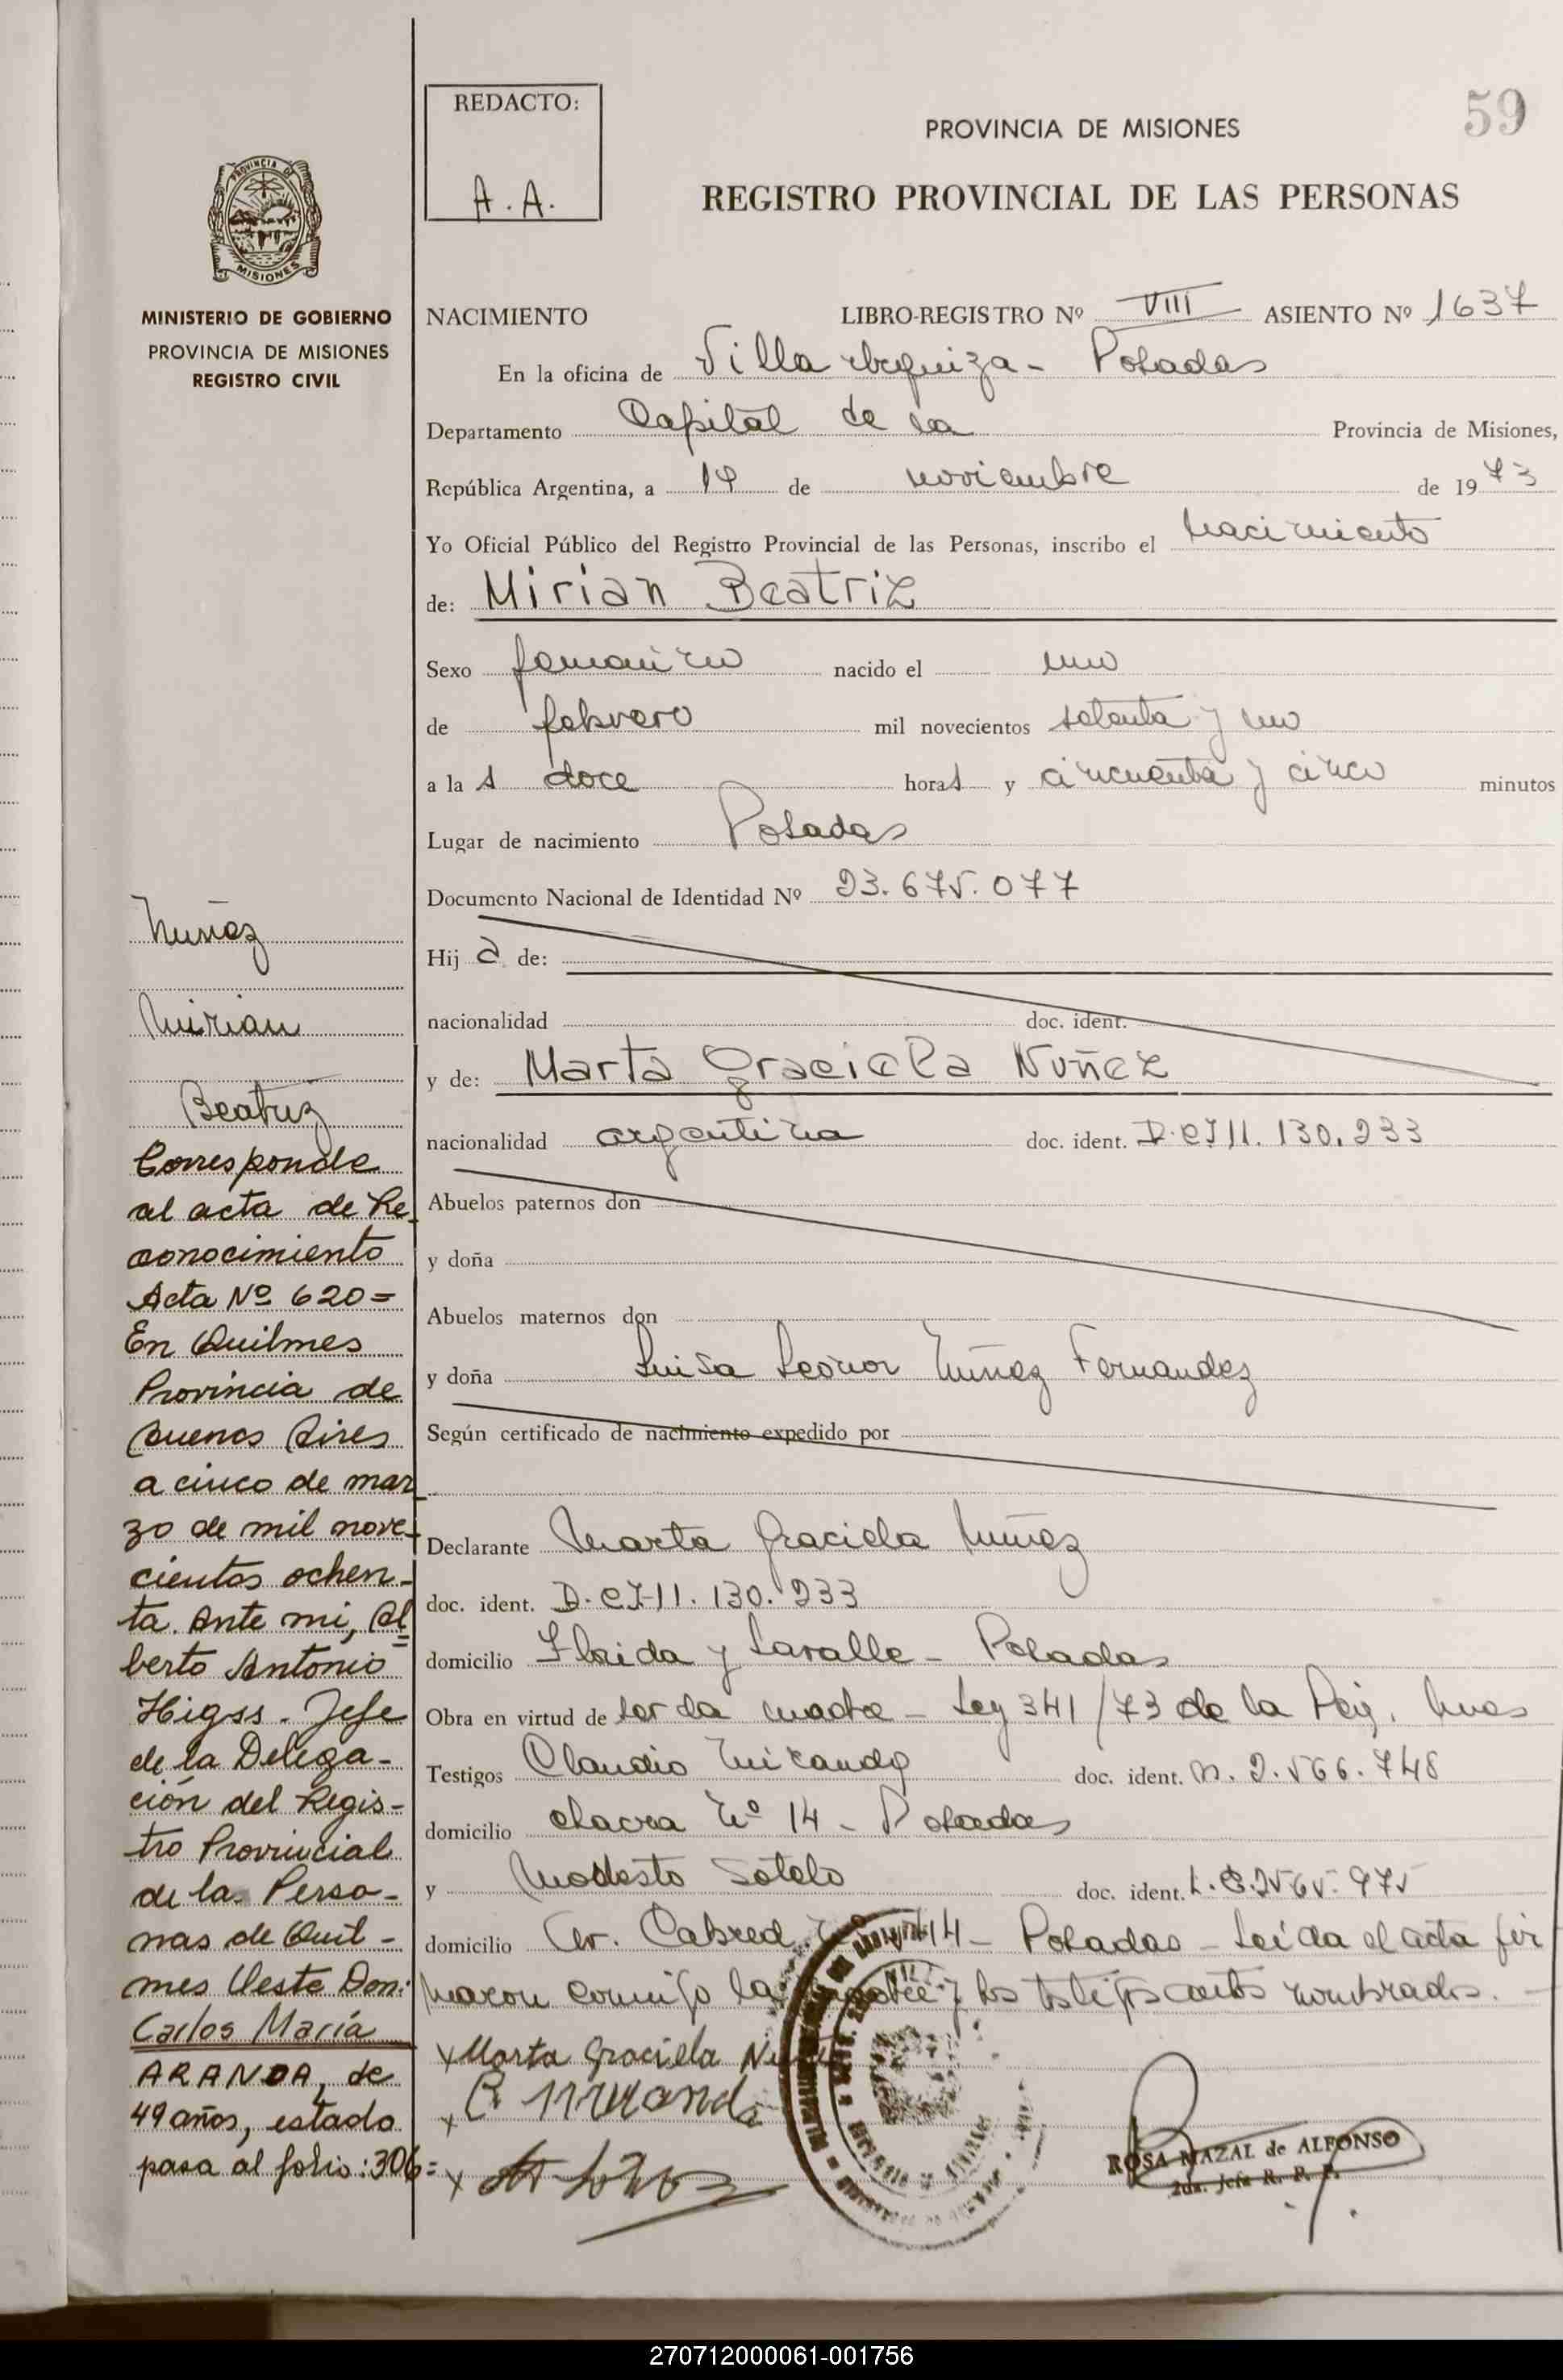 59
REDACTO:
A. A.
PROVINCIA DE MISIONES
REGISTRO PROVINCIAL DE LAS PERSONAS
PROVINCIA DE
MISIONES
MINISTERIO DE GOBIERNO
PROVINCIA DE MISIONES
REGISTRO CIVIL
NACIMIENTO LIBRO-REGISTRO Nº VIII ASIENTO Nº 1637
En la oficina de Villa Urquiza - Posadas
Departamento Capital de la Provincia de Misiones,
República Argentina, a 14 de noviembre de 1973
Yo Oficial Público del Registro Provincial de las Personas, inscribo el nacimiento
de: Mirian Beatriz
Sexo femenino nacido el uno
de febrero mil novecientos setenta y uno
a las doce horas y cincuenta y cinco minutos
Lugar de nacimiento Posadas
Documento Nacional de Identidad Nº 23.675.077
Hija de:
nacionalidad doc. ident.
y de: Marta Graciela Nuñez
nacionalidad argentina doc. ident. D. CI 11.130.233
Abuelos paternos don
y doña
Abuelos maternos don
y doña Luisa Leonor Núñez Fernandez
Según certificado de nacimiento expedido por
Declarante Marta Graciela Nuñez
doc. ident. D. CI-11.130.233
domicilio Florida y Lavalle - Posadas
Obra en virtud de ser la madre - Ley 341/73 de la
Testigos Claudio Miranda doc. ident. M. 2.566.748
domicilio chacra Nº 14 - Posadas
y Modesto Sotelo doc. ident. L.E. 2565.975
domicilio Av. Cabred 14 - Posadas - Leída el acta fir
maron conmigo la madre y los testigos antes nombrados.
x Marta Graciela Nuñez
x C. Miranda
x
ROSA MAZAL de ALFONSO
2da. Jefa R. P. P.
Nuñez
Mirian
Beatriz
Corresponde
al acta de Re
conocimiento
Acta Nº 620=
En Quilmes
Provincia de
Buenos Aires
a cinco de mar
zo de mil nove-
cientos ochen-
ta. Ante mi, Al
berto Antonio
Higss. Jefe
de la Delega-
ción del Regis-
tro Provincial
de la Perso-
nas de Quil-
mes Oeste Don:
Carlos María
ARANDA, de
49 años, estado
pasa al folio: 306=
270712000061-001756